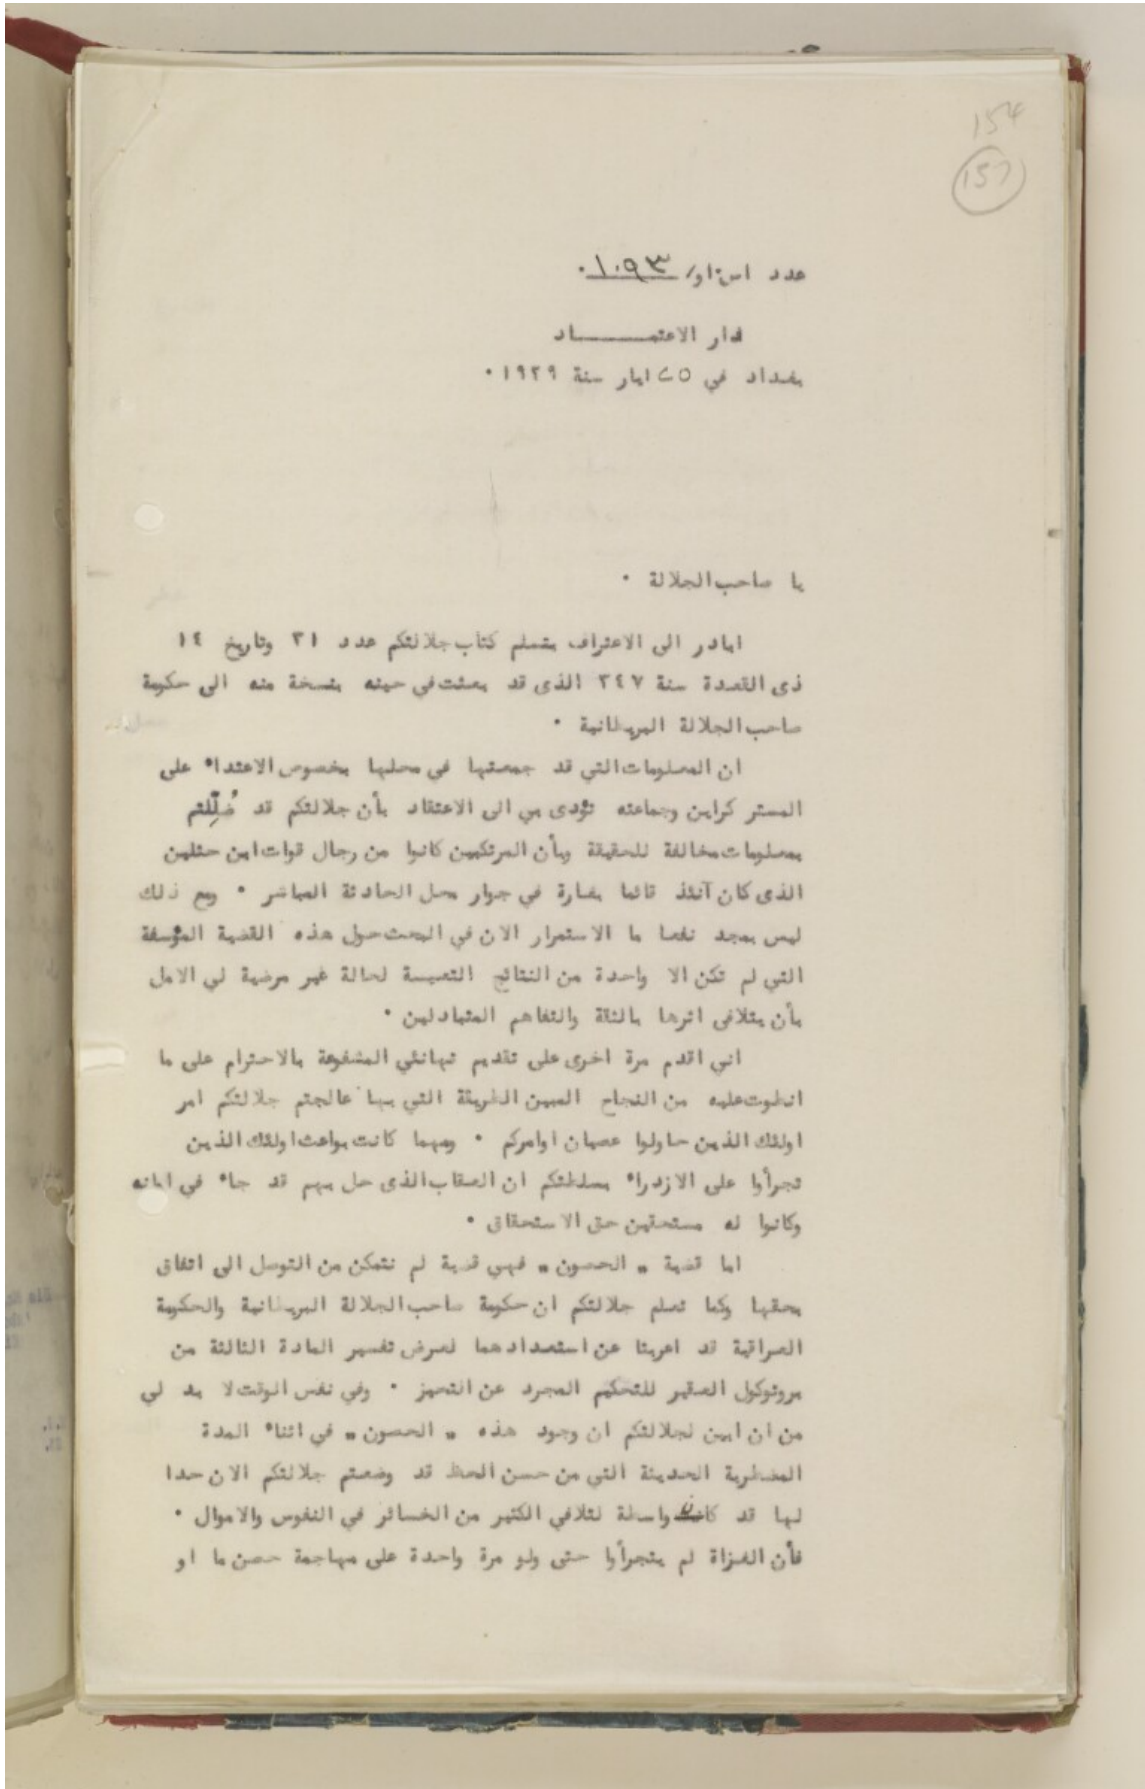 154
157
عدد اس٠او/ ١٠٩٣ ٠
دار الاعتمـــــــاد
بغداد في ٢٥ ايار سنة ١٩٢٩ ٠
يا صاحب الجلالة ٠
ابادر الى الاعتراف بتسلم كتاب جلالتكم عدد ٣١ وتاريخ ١٤
ذى القعدة سنة ٣٤٧ الذى قد بعثت في حينه بنسخة منه الى حكومة
صاحب الجلالة البريطانية ٠
ان المعلومات التي قد جمعتها في محلها بخصوص الاعتداء على
المستر كراين وجماعته تؤدى بي الى الاعتقاد بأن جلالتكم قد ضُلِّلتم
بمعلومات مخالفة للحقيقة وبأن المرتكبين كانوا من رجال قوات ابن حثلين
الذى كان آنئذ قائما بغارة في جوار محل الحادثة المباشر ٠ ومع ذلك
ليس بمجد نفعا ما الاستمرار الان في البحث حول هذه القضية المؤسفة
التي لم تكن الا واحدة من النتائج التعيسة لحالة غير مرضية لي الامل
بأن يتلافى اثرها بالثقة والتفاهم المتبادلين ٠
اني اقدم مرة اخرى على تقديم تهانئي المشفوعة بالاحترام على ما
انطوت عليه من النجاح المبين الطريقة التي بها عالجتم جلالتكم امر
اولئك الذين حاولوا عصيان اوامركم ٠ ومهما كانت بواعث اولئك الذين
تجرأوا على الازدراء بسلطتكم ان العقاب الذى حل بهم قد جاء في ابانه
وكانوا له مستحقين حق الاستحقاق ٠
اما قضية „ الحصون „ فهي قضية لم نتمكن من التوصل الى اتفاق
بحقها وكما تعلم جلالتكم ان حكومة صاحب الجلالة البريطانية والحكومة
العراقية قد اعربتا عن استعدادهما لعرض تفسير المادة الثالثة من
بروتوكول العقير للتحكيم المجرد عن التحيز ٠ وفي نفس الوقت لا بد لي
من ان ابين لجلالتكم ان وجود هذه „ الحصون „ في اثناء المدة
المضطربة الحديثة التي من حسن الحظ قد وضعتم جلالتكم الان حدا
لها قد كان واسطة لتلافي الكثير من الخسائر في النفوس والاموال ٠
فأن الغزاة لم يتجرأوا حتى ولو مرة واحدة على مهاجمة حصن ما او